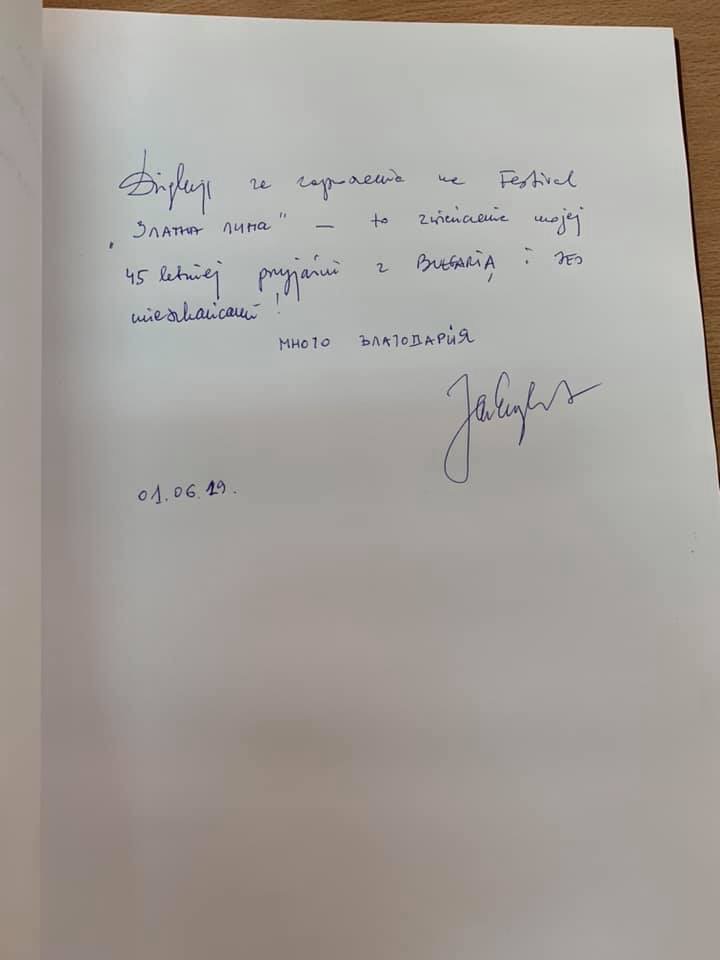 Dziękuję za zaproszenie na Festival
„Златна липа" – to zwieńczenie mojej
45 letniej przyjaźni z BULGARIĄ i JEJ
mieszkańcami!
МНОГО БЛАГОДАРИЯ
01.06.19.